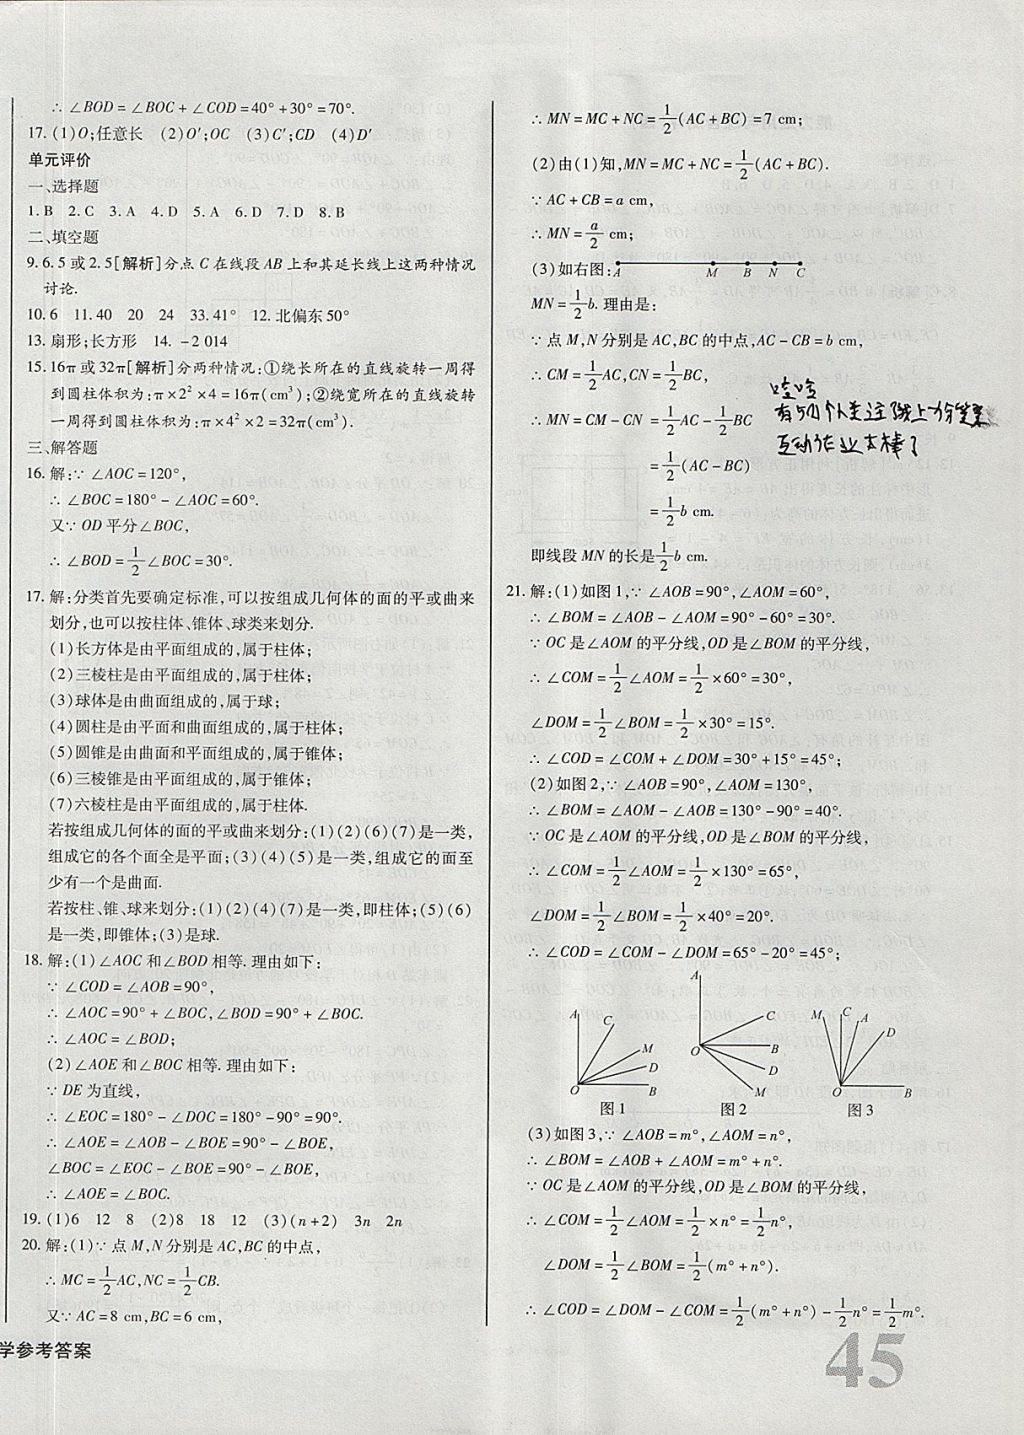 ∴ ∠BOD=∠BOC+∠COD=40°+30°=70°.
17. (1)O;任意长 (2)O′;OC (3)C′;CD (4)D′
单元评价
一、选择题
1. B 2. C 3. A 4. D 5. A 6. D 7. D 8. B
二、填空题
9. 6. 5 或 2. 5[解析]分点 C 在线段 AB 上和其延长线上这两种情况
讨论.
10. 6 11. 40 20 24 33. 41° 12. 北偏东 50°
13. 扇形;长方形 14. -2 014
15. 16π 或 32π[解析]分两种情况:①绕长所在的直线旋转一周得
到圆柱体积为:π×2²×4=16π(cm³);②绕宽所在的直线旋转
一周得到圆柱体积为:π×4²×2=32π(cm³).
三、解答题
16. 解:∵ ∠AOC=120°,
∴ ∠BOC=180°-∠AOC=60°.
又∵ OD 平分∠BOC,
∴ ∠BOD=1/2∠BOC=30°.
17. 解:分类首先要确定标准,可以按组成几何体的面的平或曲来
划分,也可以按柱体、锥体、球类来划分.
(1)长方体是由平面组成的,属于柱体;
(2)三棱柱是由平面组成的,属于柱体;
(3)球体是由曲面组成的,属于球;
(4)圆柱是由平面和曲面组成的,属于柱体;
(5)圆锥是由曲面和平面组成的,属于锥体;
(6)三棱锥是由平面组成的,属于锥体;
(7)六棱柱是由平面组成的,属于柱体.
若按组成几何体的面的平或曲来划分:(1)(2)(6)(7)是一类,
组成它的各个面全是平面;(3)(4)(5)是一类,组成它的面至
少有一个是曲面.
若按柱、锥、球来划分:(1)(2)(4)(7)是一类,即柱体;(5)(6)
是一类,即锥体;(3)是球.
18. 解:(1)∠AOC 和∠BOD 相等. 理由如下:
∵ ∠COD=∠AOB=90°,
∴ ∠AOC=90°+∠BOC,∠BOD=90°+∠BOC.
∴ ∠AOC=∠BOD;
(2)∠AOE 和∠BOC 相等. 理由如下:
∵ DE 为直线,
∴ ∠EOC=180°-∠DOC=180°-90°=90°.
∴ ∠AOE=∠AOB-∠BOE=90°-∠BOE,
∠BOC=∠EOC-∠BOE=90°-∠BOE,
∴ ∠AOE=∠BOC.
19. (1)6 12 8 (2)8 18 12 (3)(n+2) 3n 2n
20. 解:(1)∵ 点 M,N 分别是 AC,BC 的中点,
∴ MC=1/2AC,NC=1/2CB.
又∵ AC=8 cm,BC=6 cm,
学参考答案
∴ MN=MC+NC=1/2(AC+BC)=7 cm;
(2)由(1)知,MN=MC+NC=1/2(AC+BC).
∵ AC+CB=a cm,
∴ MN=a/2 cm;
(3)如右图:
A M B N C
MN=1/2b. 理由是:
∵ 点 M,N 分别是 AC,BC 的中点,AC-CB=b cm,
∴ CM=1/2AC,CN=1/2BC,
∴ MN=CM-CN=1/2AC-1/2BC
=1/2(AC-BC)
=1/2b cm.
即线段 MN 的长是1/2b cm.
互动作业太棒了
21. 解:(1)如图 1,∵ ∠AOB=90°,∠AOM=60°,
∴ ∠BOM=∠AOB-∠AOM=90°-60°=30°.
∵ OC 是∠AOM 的平分线,OD 是∠BOM 的平分线,
∴ ∠COM=1/2∠AOM=1/2×60°=30°,
∠DOM=1/2∠BOM=1/2×30°=15°.
∴ ∠COD=∠COM+∠DOM=30°+15°=45°;
(2)如图 2,∵ ∠AOB=90°,∠AOM=130°,
∴ ∠BOM=∠AOM-∠AOB=130°-90°=40°.
∵ OC 是∠AOM 的平分线,OD 是∠BOM 的平分线,
∴ ∠COM=1/2∠AOM=1/2×130°=65°,
∠DOM=1/2∠BOM=1/2×40°=20°.
∴ ∠COD=∠COM-∠DOM=65°-20°=45°;
A C M D B O
图 1
A C B D M O
图 2
M C A D B O
图 3
(3)如图 3,∵ ∠AOB=m°,∠AOM=n°,
∴ ∠BOM=∠AOB+∠AOM=m°+n°.
∵ OC 是∠AOM 的平分线,OD 是∠BOM 的平分线,
∴ ∠COM=1/2∠AOM=1/2×n°=1/2n°,
∠DOM=1/2∠BOM=1/2(m°+n°).
∴ ∠COD=∠DOM-∠COM=1/2(m°+n°)-1/2n°=1/2m°.
45